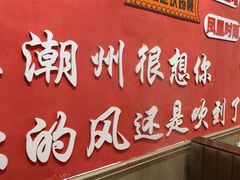 凤凰时间
潮州很想你
的风还是吹到了